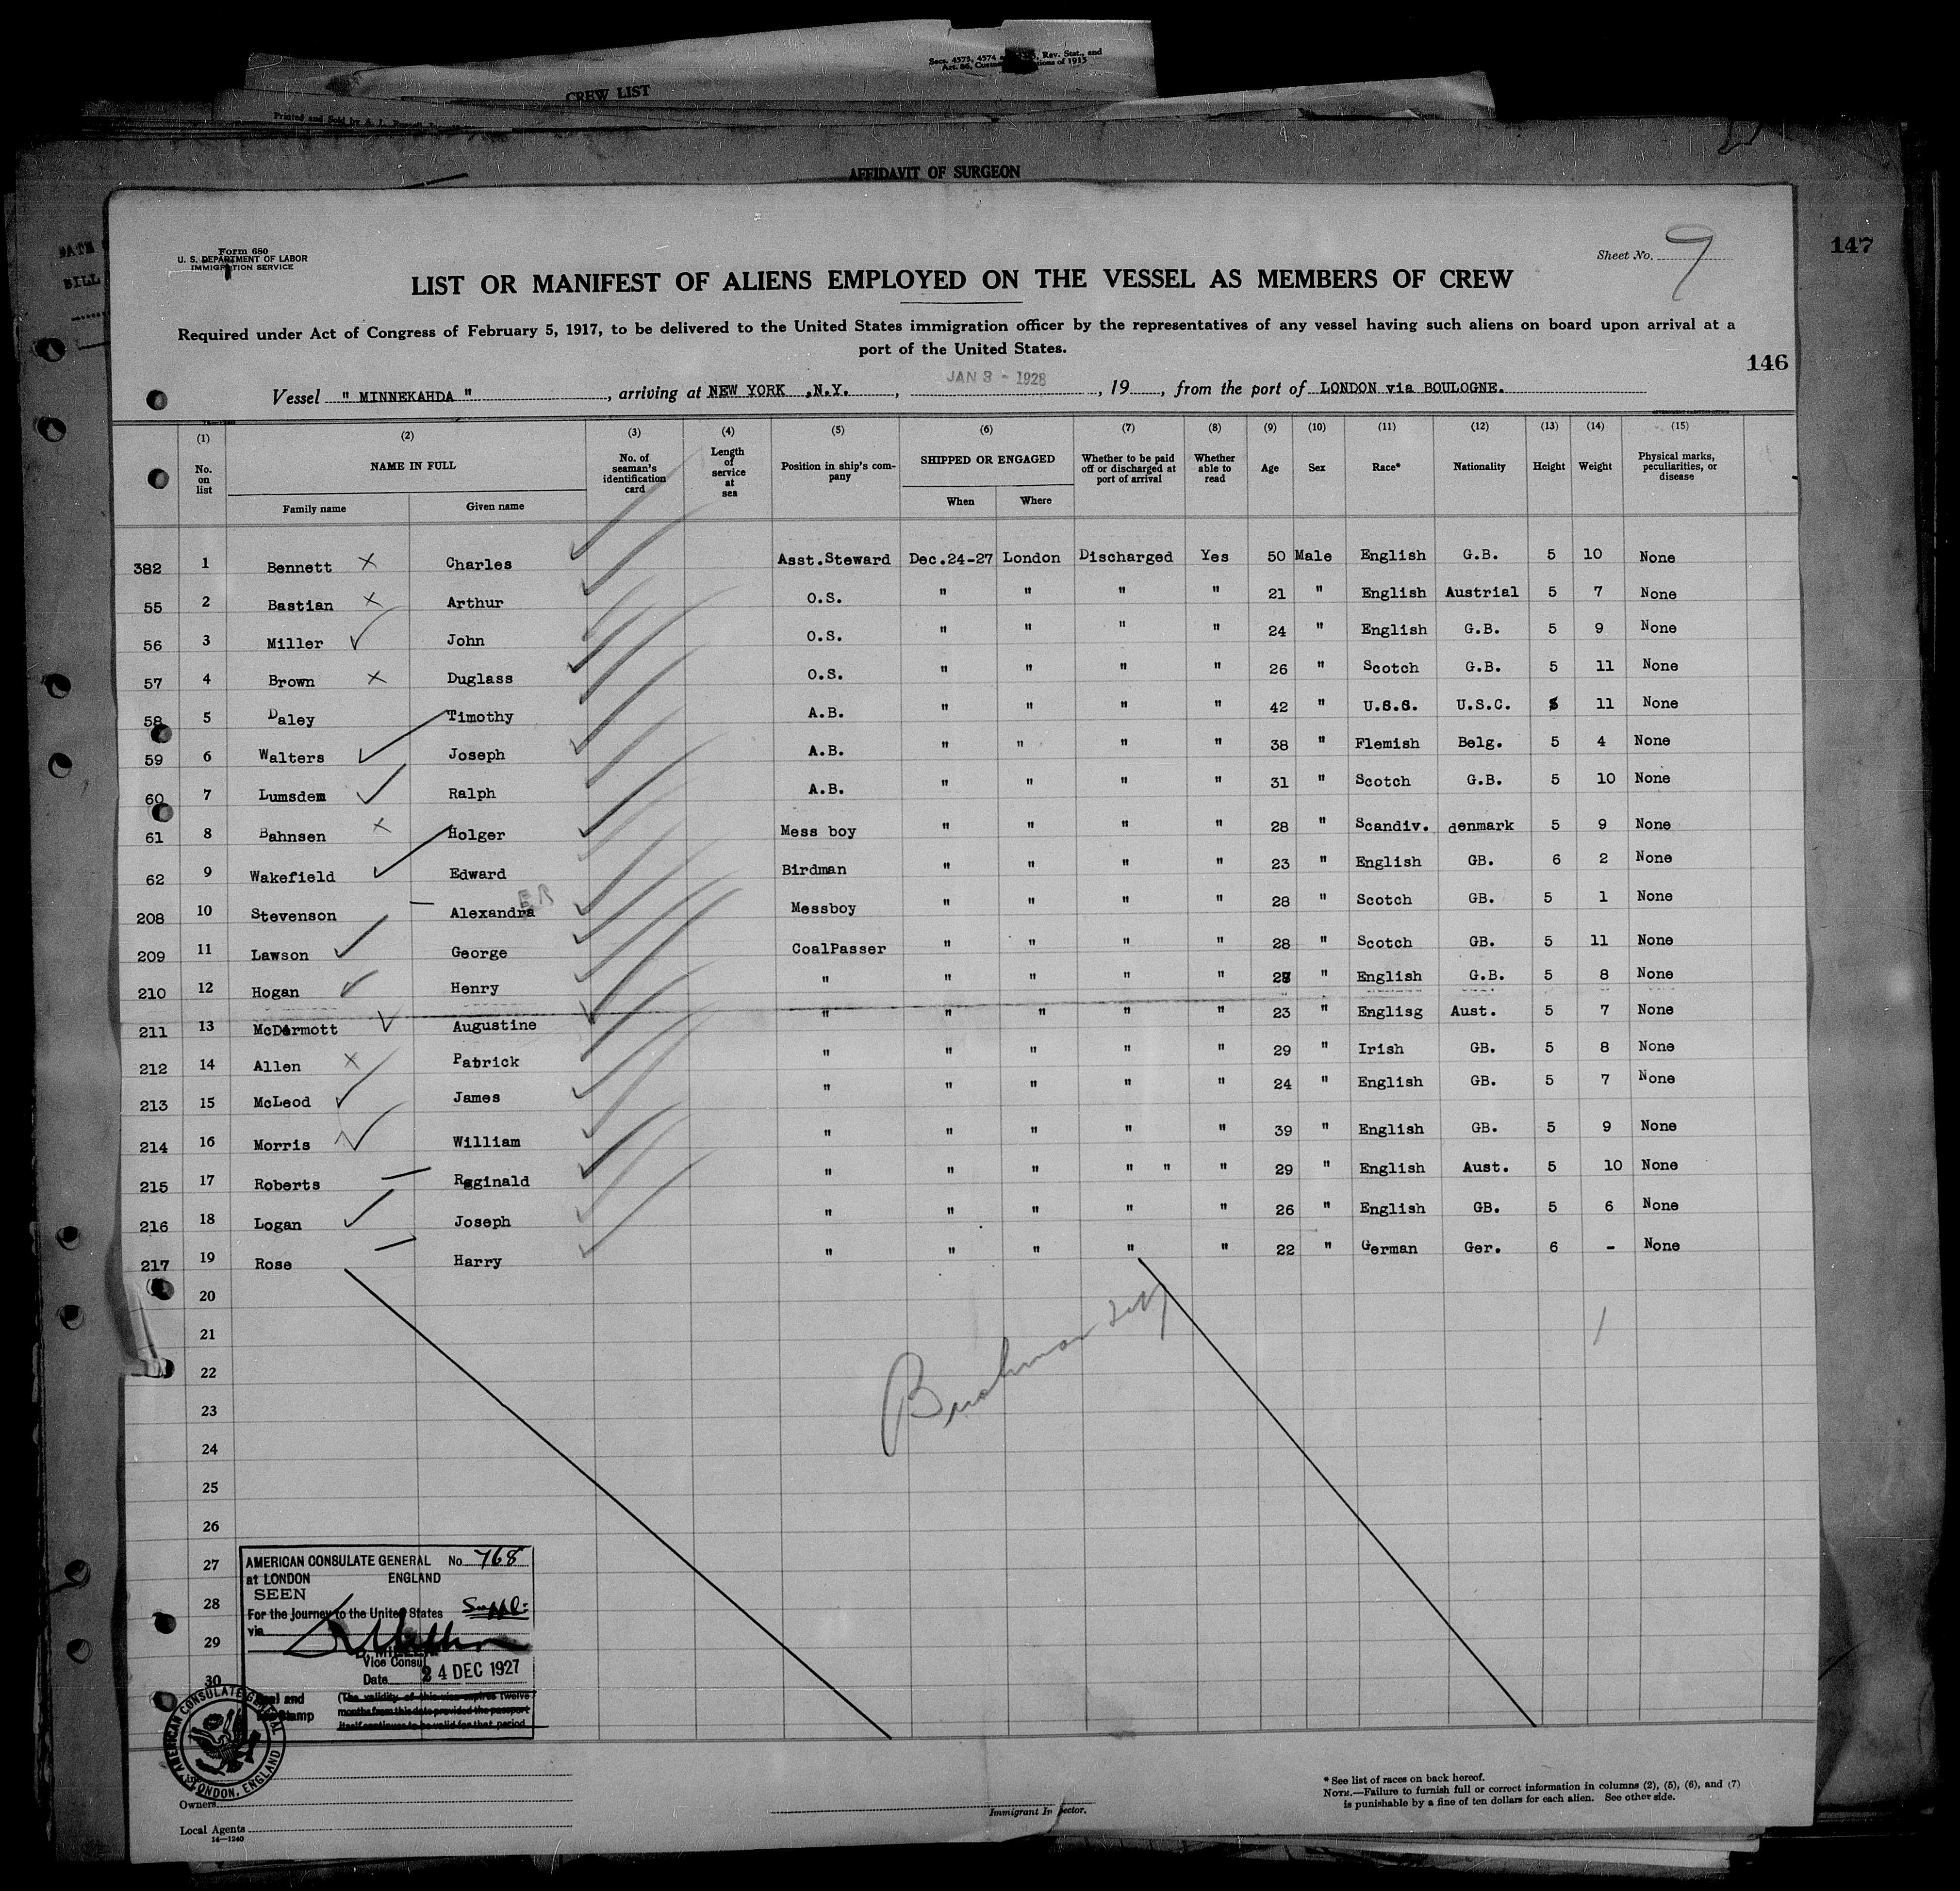 Secs. 4573, 4574 Rev. Stat., and
Art. 86, Customs of 1915
CREW LIST
Printed and Sold by A. L.
AFFIDAVIT OF SURGEON
BILL
147
Form 680
U. S. DEPARTMENT OF LABOR
IMMIGRATION SERVICE
Sheet No. 9
LIST OR MANIFEST OF ALIENS EMPLOYED ON THE VESSEL AS MEMBERS OF CREW
Required under Act of Congress of February 5, 1917, to be delivered to the United States immigration officer by the representatives of any vessel having such aliens on board upon arrival at a
port of the United States.
146
Vessel " MINNEKAHDA " , arriving at NEW YORK ,N.Y. , JAN 3 - 1928 , 19 , from the port of LONDON via BOULOGNE.
(1) (2) (3) (4) (5) (6) (7) (8) (9) (10) (11) (12) (13) (14) (15)
No. on list NAME IN FULL Family name Given name No. of seaman's identification card Length of service at sea Position in ship's company SHIPPED OR ENGAGED When Where Whether to be paid off or discharged at port of arrival Whether able to read Age Sex Race* Nationality Height Weight Physical marks, peculiarities, or disease
382 1 Bennett x Charles Asst.Steward Dec.24-27 London Discharged Yes 50 Male English G.B. 5 10 None
55 2 Bastian x Arthur O.S. " " " " 21 " English Austrial 5 7 None
56 3 Miller ✓ John O.S. " " " " 24 " English G.B. 5 9 None
57 4 Brown x Duglass O.S. " " " " 26 " Scotch G.B. 5 11 None
58 5 Daley Timothy A.B. " " " " 42 " U.S.S. U.S.C. 5 11 None
59 6 Walters ✓ Joseph A.B. " " " " 38 " Flemish Belg. 5 4 None
60 7 Lumsden ✓ Ralph A.B. " " " " 31 " Scotch G.B. 5 10 None
61 8 Bahnsen x Holger Mess boy " " " " 28 " Scandiv. denmark 5 9 None
62 9 Wakefield ✓ Edward Birdman " " " " 23 " English GB. 6 2 None
208 10 Stevenson — Alexandra ER Messboy " " " " 28 " Scotch GB. 5 1 None
209 11 Lawson ✓ George CoalPasser " " " " 28 " Scotch GB. 5 11 None
210 12 Hogan ✓ Henry " " " " " " English G.B. 5 8 None
211 13 McDermott ✓ Augustine " " " " " 23 " Englisg Aust. 5 7 None
212 14 Allen x Patrick " " " " " 29 " Irish GB. 5 8 None
213 15 McLeod ✓ James " " " " " 24 " English GB. 5 7 None
214 16 Morris ✓ William " " " " " 39 " English GB. 5 9 None
215 17 Roberts — Rgginald " " " " " " 29 " English Aust. 5 10 None
216 18 Logan ✓ Joseph " " " " " 26 " English GB. 5 6 None
217 19 Rose — Harry " " " " " 22 " German Ger. 6 - None
20
21
22
23
24
25
26
27
28
29
30
AMERICAN CONSULATE GENERAL No 768
at LONDON ENGLAND
SEEN
For the journey to the United States Suppl:
via
Vice Consul
Date 24 DEC 1927
Seal and Stamp
(The validity of this visa expires twelve
months from this date provided the passport
itself continues to be valid for that period
AMERICAN CONSULATE GENERAL LONDON, ENGLAND.
Owners
Local Agents
14—1240
Immigrant Inspector.
* See list of races on back hereof.
NOTE.—Failure to furnish full or correct information in columns (2), (5), (6), and (7)
is punishable by a fine of ten dollars for each alien. See other side.